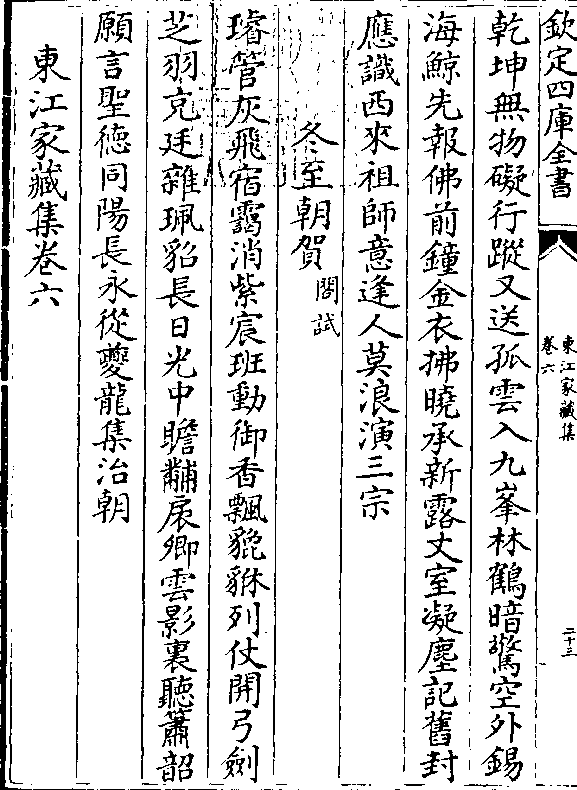 欽定四庫全書
東江家藏集
卷六
二十三
乾坤無物礙行蹤又送孤雲入九峯林鶴暗驚空外錫
海鯨先報佛前鐘金衣拂曉承新露丈室凝塵記舊封
應識西來祖師意逢人莫浪演三宗
冬至朝賀閣試
璿管灰飛宿靄消紫宸班動御香飄貔貅列仗開弓劍
芝羽克廷雜珮貂長日光中瞻黼扆卿雲影裏聽簫韶
願言聖徳同陽長永從夔龍集治朝
東江家藏集卷六